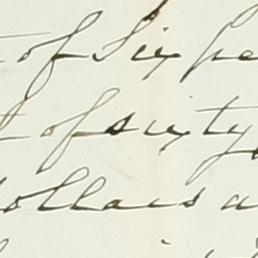 of Six pe
of sixty
dollars a